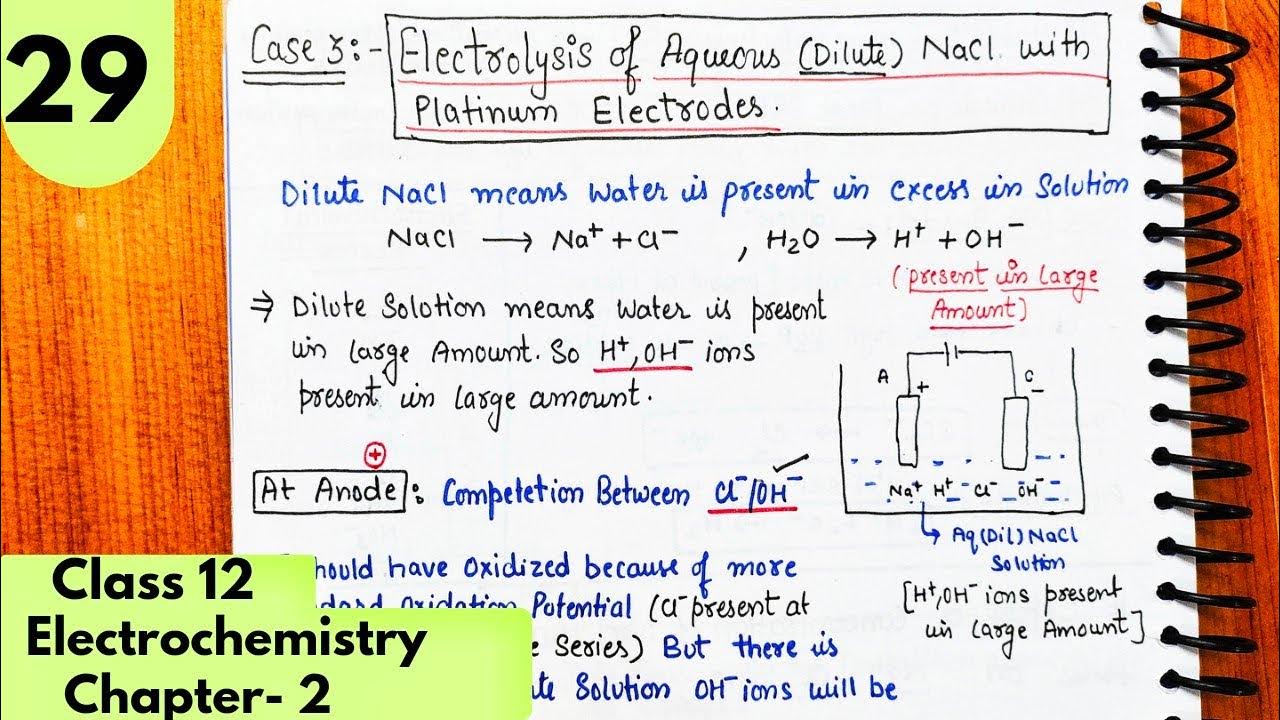 29
Case 3:- Electrolysis of Aqueous (Dilute) NaCl. with
Platinum Electrodes.
Dilute NaCl means water is present in excess in Solution
NaCl → Na⁺ + Cl⁻ , H₂O → H⁺ + OH⁻
(present in large
Amount)
⇒ Dilute Solution means water is present
in large Amount. So H⁺, OH⁻ ions
present in large amount.
A + C −
Na⁺ H⁺ Cl⁻ OH⁻
Aq(Dil) NaCl
Solution
[H⁺, OH⁻ ions present
in large Amount]
+
At Anode : Competetion Between Cl⁻/OH⁻ ✓
have oxidized because of more
Oxidation Potential (Cl⁻ present at
Series) But there is
Solution OH⁻ ions will be
Class 12
Electrochemistry
Chapter- 2